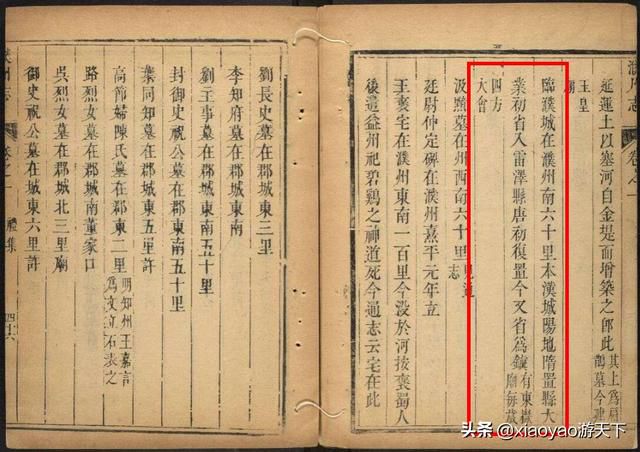 延運土以塞河自金堤而增築之即此
其上為扁
鵲墓今建
玉皇
廟
臨濮城在濮州南六十里本漢城陽地隋置縣大
業初省入雷澤縣唐初復置今又省為鎮
有東嶽
廟每歲
四方
大會
汲黯墓在州西南六十里
見通
志
廷尉仲定碑在濮州熹平元年立
王褒宅在濮州東南一百里今没於河按褒蜀人
後遣益州祀碧鷄之神道死今通志云宅在此
劉長史墓在郡東三里
李知府墓在郡城東
劉主事墓在郡東南五十里
封御史墓在郡城東南五十里
葉同知墓在郡城東五里許
高節婦陳氏墓在郡東二里
明知州王嘉言
為文立石表之
路烈女墓在郡城南董家口
吳烈女墓在郡城北三里廟
御史祝公墓在城東六里許
濮州志
卷之一
禮集
四六
头条 @xiaoyao游天下